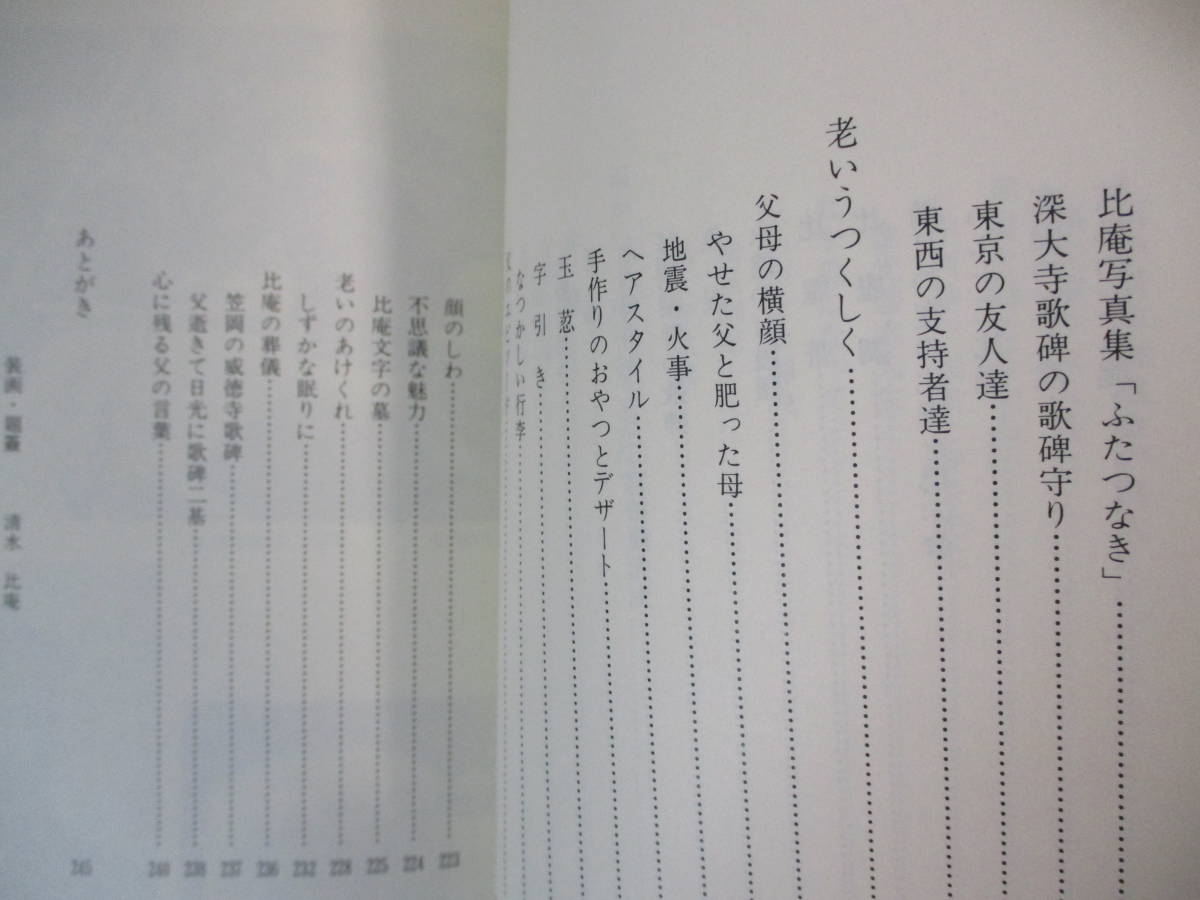 比庵写真集「ふたつなき」
深大寺歌碑の歌碑守り
東京の友人達
東西の支持者達
老いうつくしく
父母の横顔
やせた父と肥った母
地震・火事
ヘアスタイル
手作りのおやつとデザート
玉葱
字引き
なつかしい行李
顔のしわ 223
不思議な魅力 224
比庵文字の墓 225
老いのあけくれ 228
しずかな眠りに 232
比庵の葬儀 236
笠岡の威徳寺歌碑 237
父逝きて日光に歌碑二基 238
心に残る父の言葉 240
あとがき 245
装画・題簽 清水 比庵